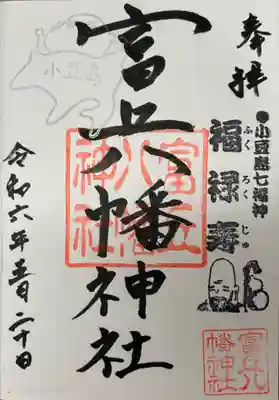 奉拝
●小豆島七福神
福禄寿
ふくろくじゅ
富丘八幡神社
富丘八幡神社
富丘八幡神社
小豆島
令和六年五月二十日